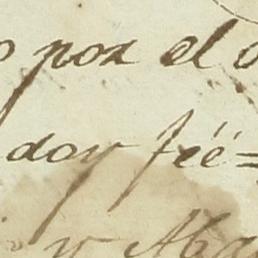 por el
doy feé=
y